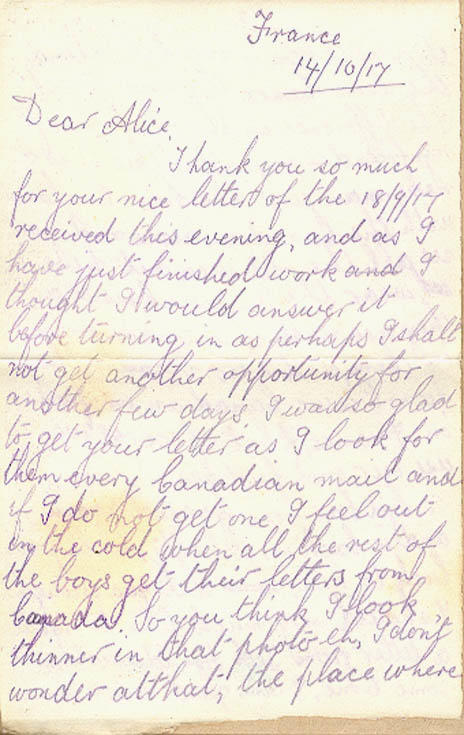 France
14/10/17
Dear Alice,
Thank you so much
for your nice letter of the 18/9/17
received this evening, and as I
have just finished work and I
thought I would answer it
before turning in as perhaps I shall
not get another opportunity for
another few days. I was so glad
to get your letter as I look for
them every Canadian mail and
if I do not get one I feel out
in the cold when all the rest of
the boys get their letters from
Canada. So you think I look
thinner in that photo eh, I don't
wonder at that, the place where